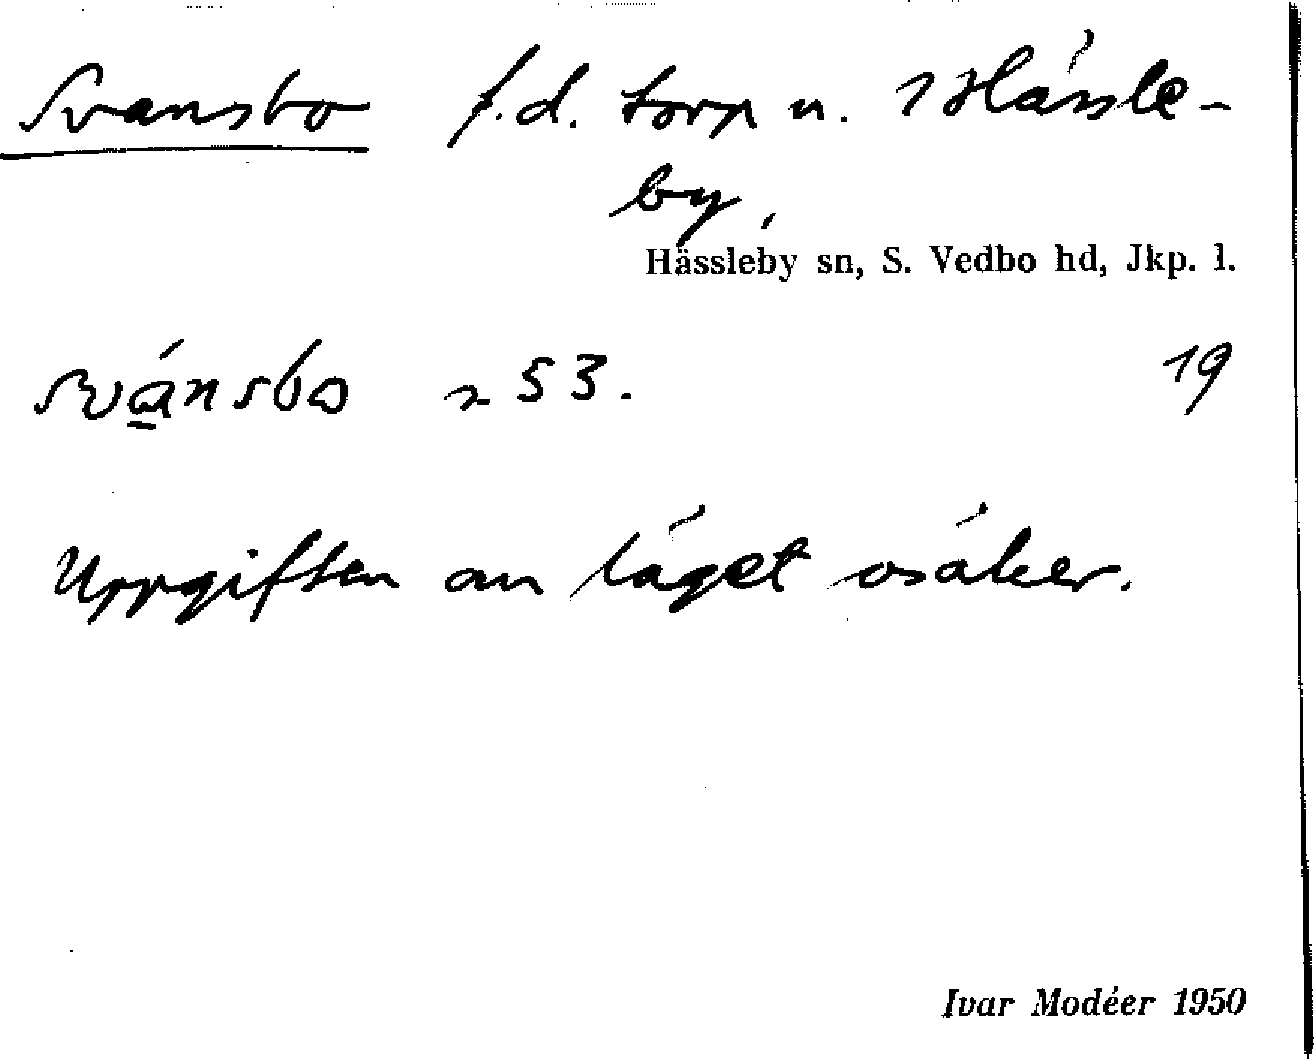 Svansbo f.d. torp u. Hässle-
by,
Hässleby sn, S. Vedbo hd, Jkp. l.
svánsbo 53. 19
Uppgiften om läget osäker.
Ivar Modéer 1950